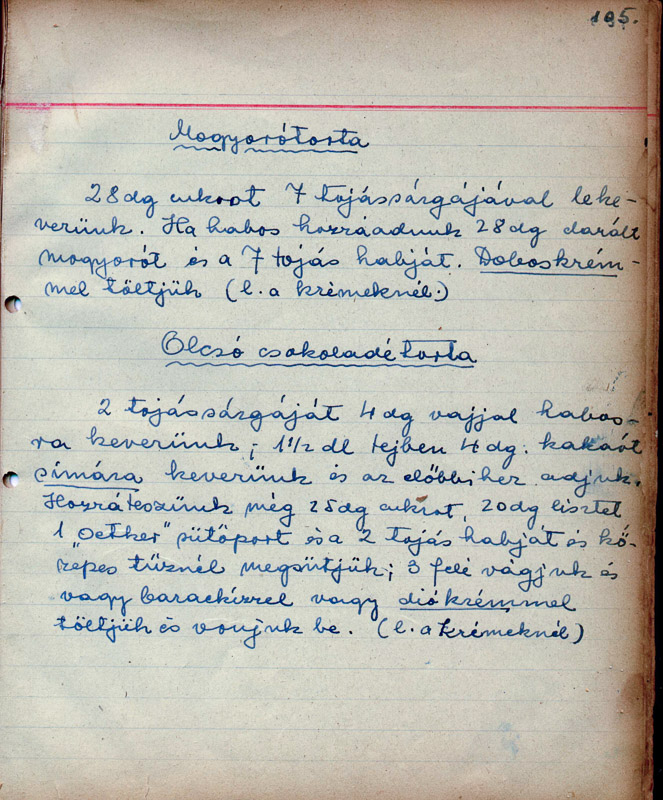 195.
Mogyorótorta
28dg cukrot 7 tojássárgájával leke-
verünk. Ha habos hozzáadunk 28dg darált
mogyorót és a 7 tojás habját. Doboskrém-
mel töltjük (l. a krémeknél.)
Olcsó csokoládétorta
2 tojássárgáját 4 dg vajjal habos-
ra keverünk; 1 1/2 dl tejben 4 dg. kakaót
símára keverünk és az előbbihez adjuk.
Hozzáteszünk még 25dg cukrot, 20dg lisztet
1 „Oetker" sütőport és a 2 tojás habját és kö-
zepes tűznél megsütjük; 3 felé vágjuk és
vagy barackízzel vagy diókrémmel
töltjük és vonjuk be. (l. a krémeknél)